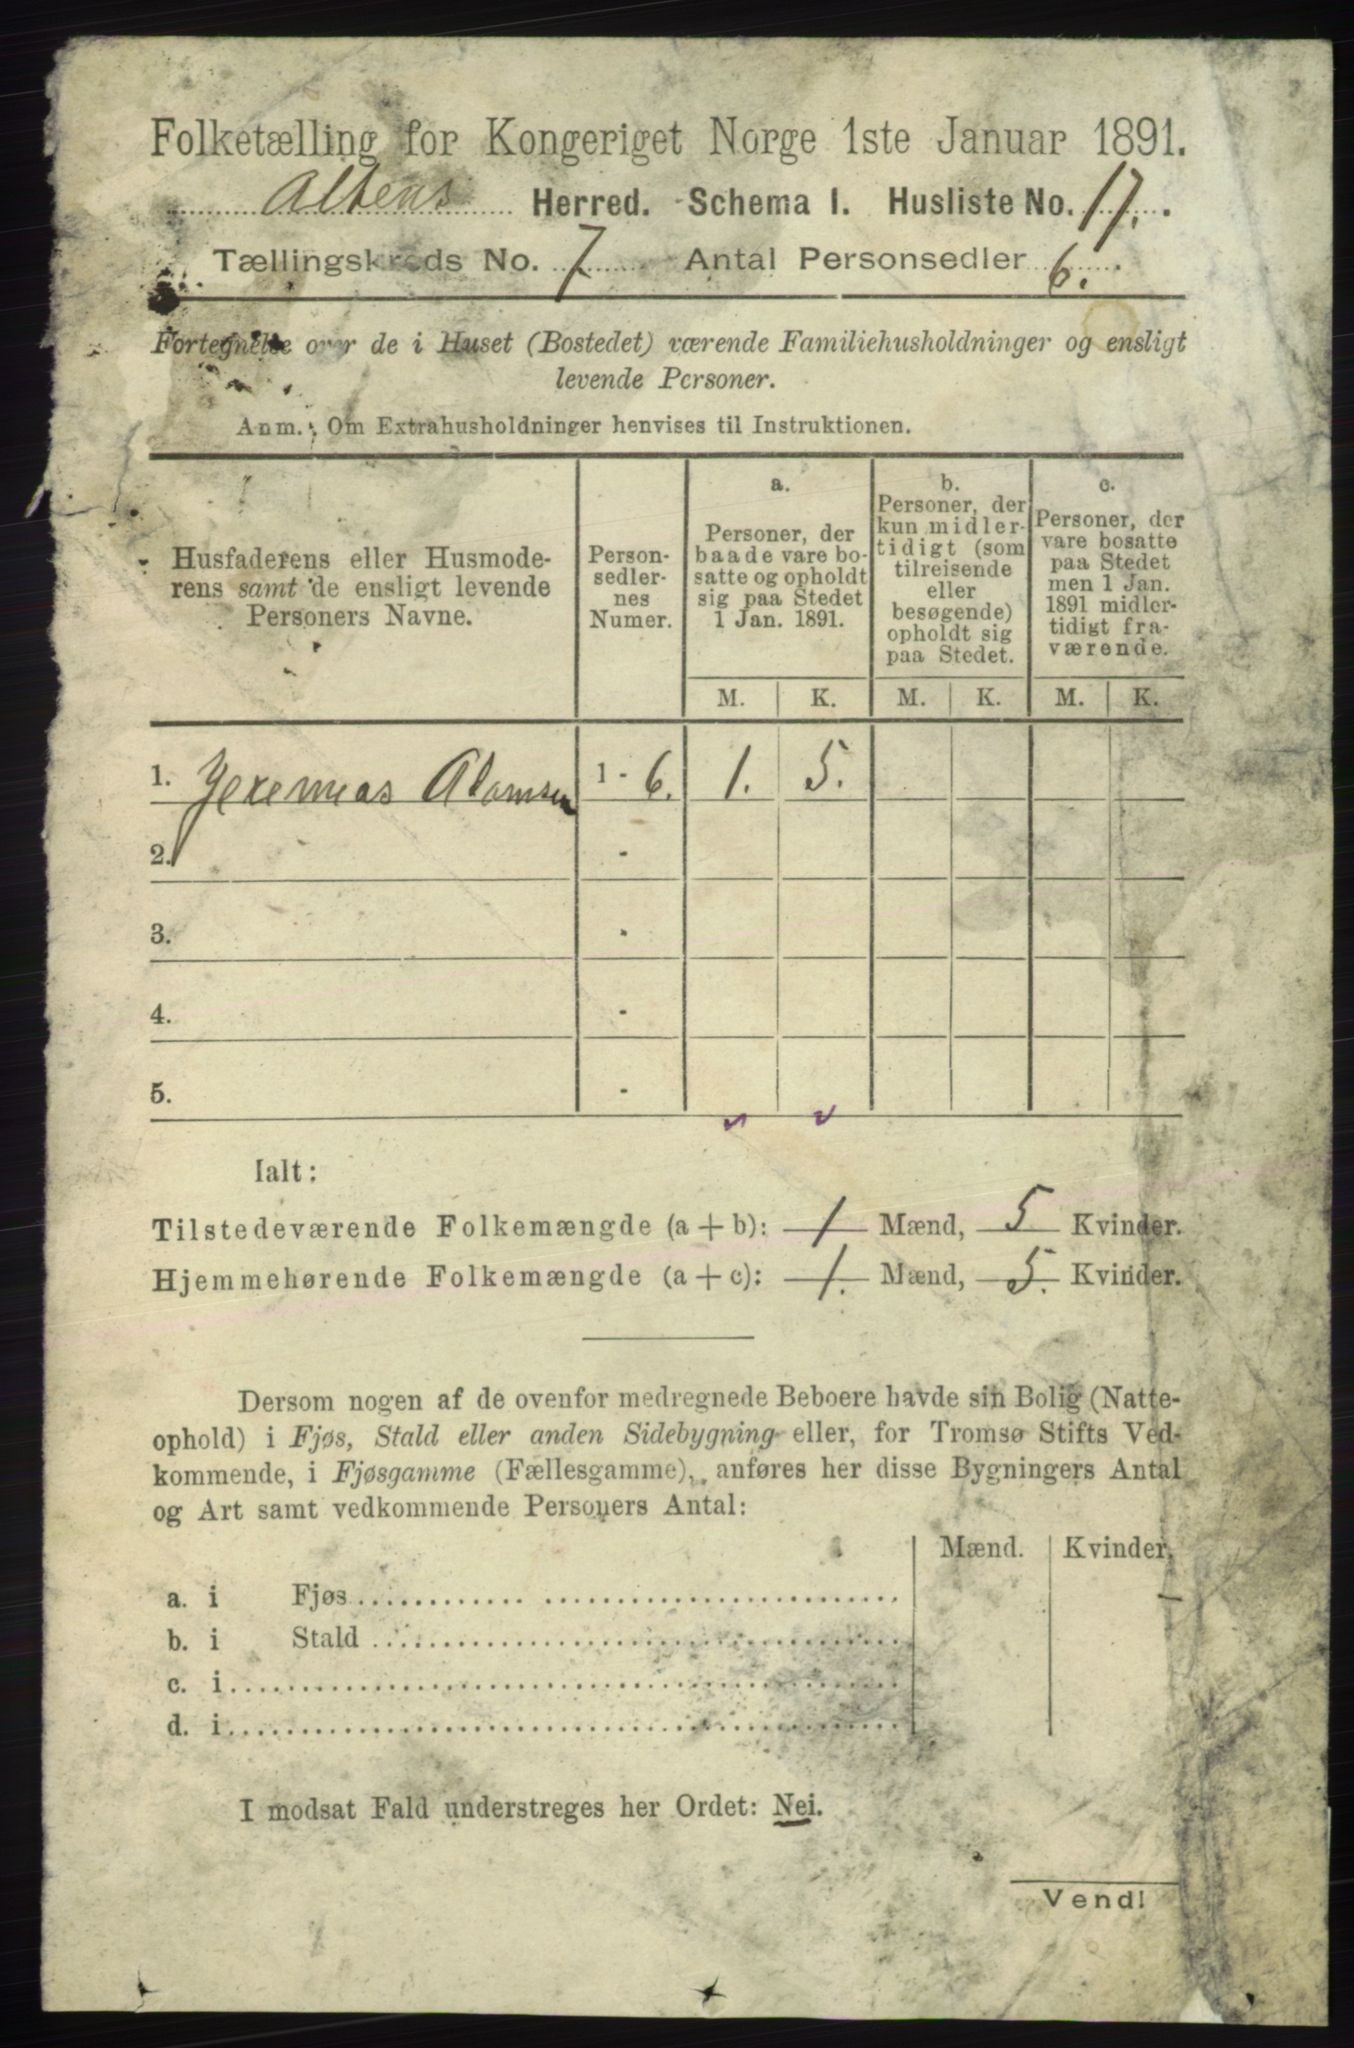 Folketælling for Kongeriget Norge 1ste Januar 1891.
Altens Herred. Schema I. Husliste No. 17.
Tællingskreds No. 7 Antal Personsedler 6.
Fortegnelse over de i Huset (Bostedet) værende Familiehusholdninger og ensligt
levende Personer.
Anm. Om Extrahusholdninger henvises til Instruktionen.
Husfaderens eller Husmode-
rens samt de ensligt levende
Personers Navne.
Person-
sedler-
nes
Numer.
a.
Personer, der
baade vare bo-
satte og opholdt
sig paa Stedet
1 Jan. 1891.
b.
Personer, der
kun midler-
tidigt (som
tilreisende
eller
besøgende)
opholdt sig
paa Stedet.
c.
Personer, der
vare bosatte
paa Stedet
men 1 Jan.
1891 midler-
tidigt fra-
værende.
M. K. M. K. M. K.
1. Jeremias Adamsen 1 - 6. 1. 5.
2. -
3. -
4. -
5. -
Ialt:
Tilstedeværende Folkemængde (a + b): 1 Mænd, 5 Kvinder.
Hjemmehørende Folkemængde (a + c): 1. Mænd, 5. Kvinder.
Dersom nogen af de ovenfor medregnede Beboere havde sin Bolig (Natte-
ophold) i Fjøs, Stald eller anden Sidebygning eller, for Tromsø Stifts Ved-
kommende, i Fjøsgamme (Fællesgamme), anføres her disse Bygningers Antal
og Art samt vedkommende Personers Antal:
Mænd. Kvinder.
a. i Fjøs
b. i Stald
c. i
d. i
I modsat Fald understreges her Ordet: Nei.
Vend!